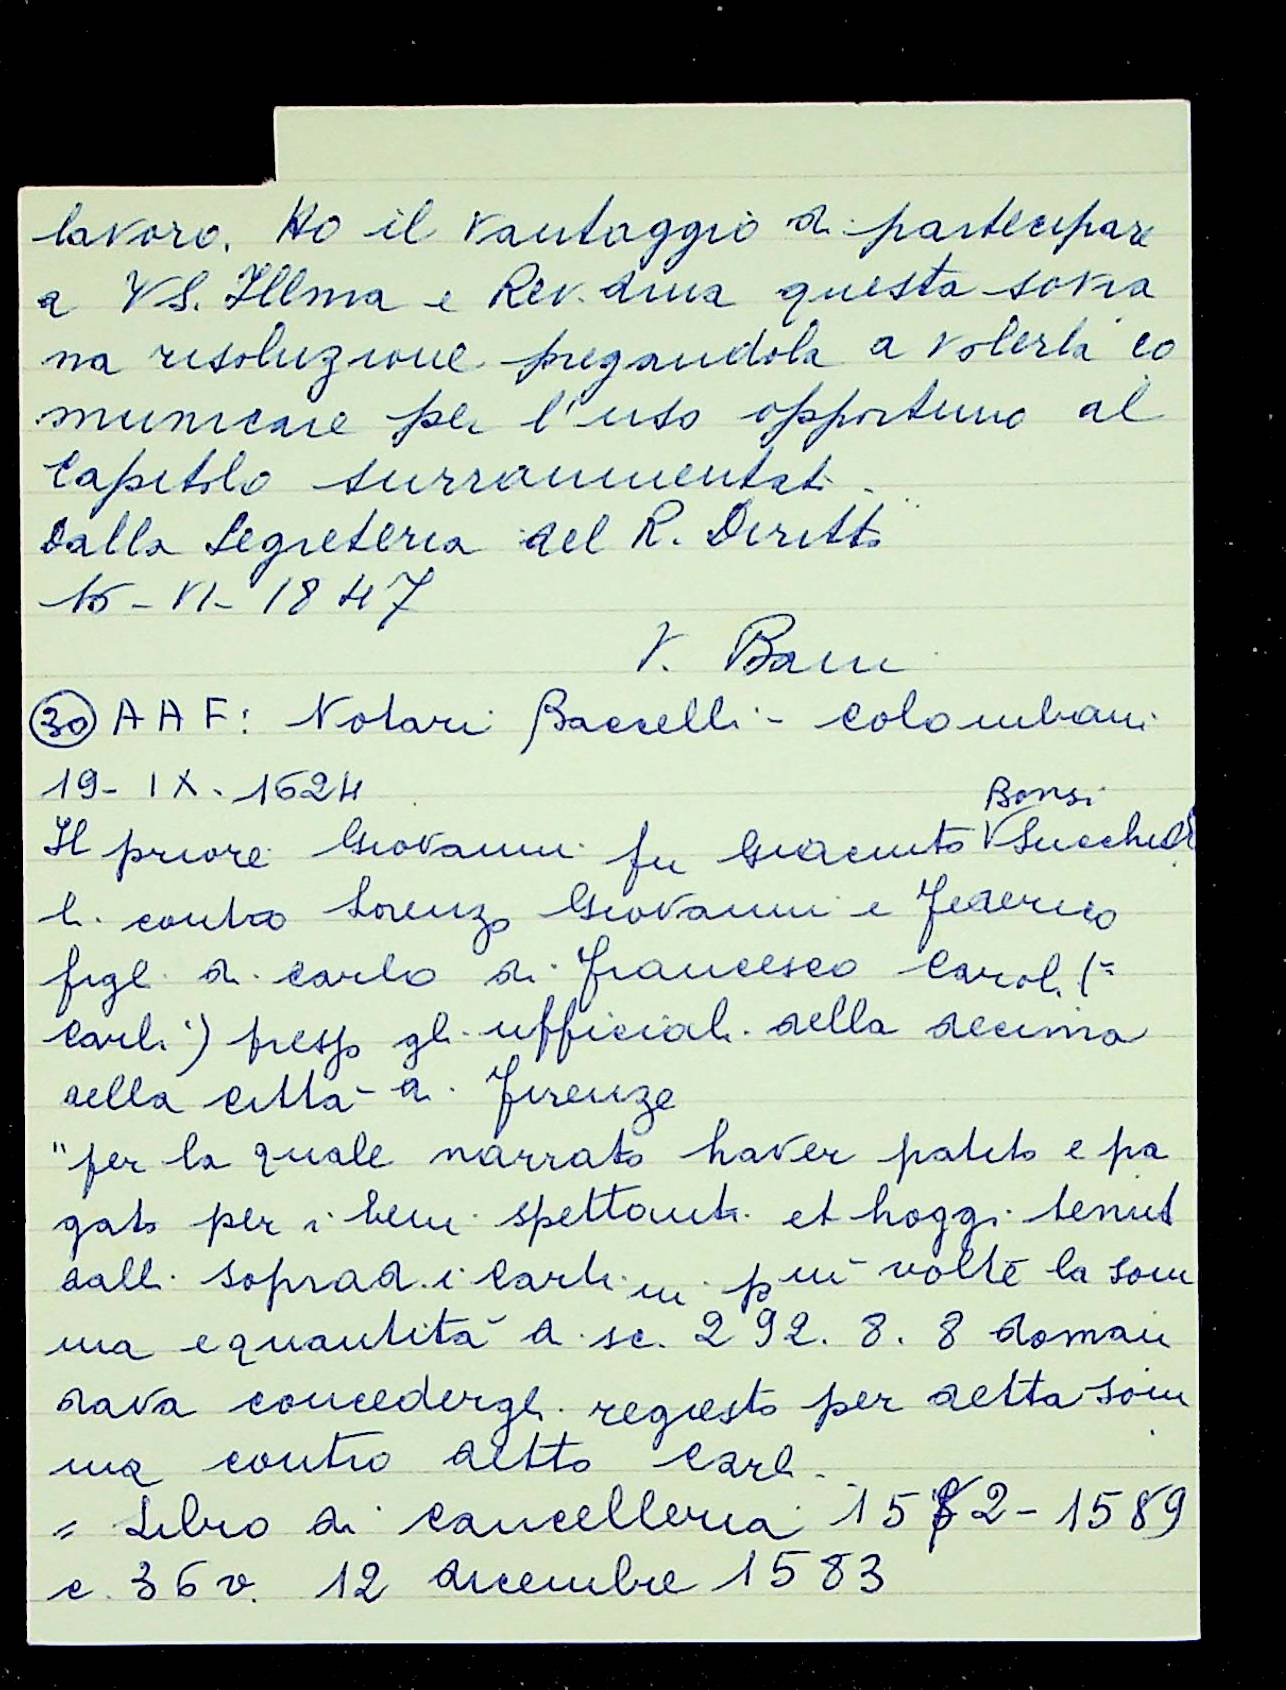 lavoro. Ho il vantaggio di partecipare
a VS. Illma e Rev.dma questa sovra
na risoluzione pregandola a volerla co
municare per l'uso opportuno al
Capitolo surrammentati.
Dalla Segreteria del R. Diritto
16-VI-1847
V. Bani
30 AAF: Notari Baccelli - Colombani
19-IX-1624
Bonsi
Il priore Giovanni fu Giacinto V Succhiel
li contro Lorenzo Giovanni e Federico
figli di Carlo di Francesco Caroli (=
Carli) presso gli ufficiali della decima
della città di Firenze
"per la quale narrato haver patito e pa
gato per i beni spettanti et hoggi tenut
dalli sopradi i Carli in più volte la som
ma e quantità di sc. 292. 8. 8 doman
dava concedergli regresto per detta som
ma contro detto Carli.
= Libro di Cancelleria 1572-1589
c. 36 v. 12 dicembre 1583